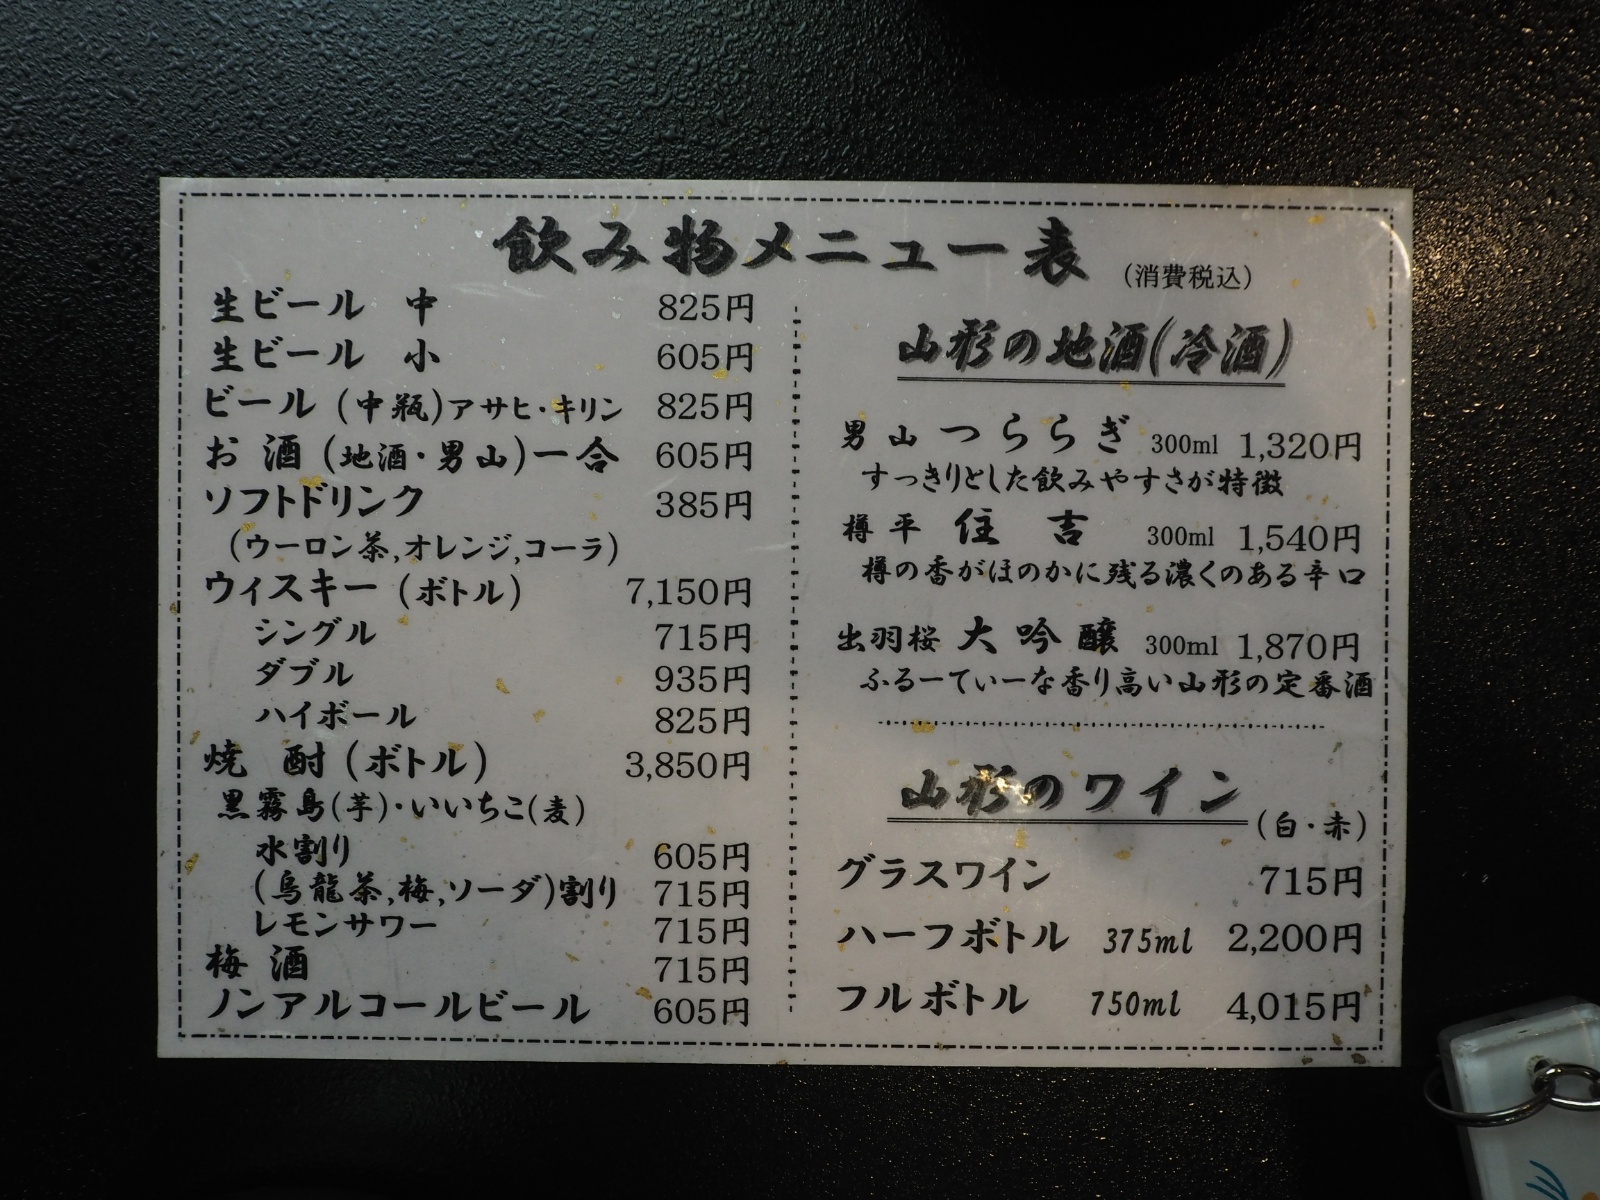 飲み物メニュー表 (消費税込)
生ビール 中 825円
生ビール 小 605円
ビール (中瓶)アサヒ・キリン 825円
お酒 (地酒・男山)一合 605円
ソフトドリンク 385円
(ウーロン茶,オレンジ,コーラ)
ウィスキー (ボトル) 7,150円
シングル 715円
ダブル 935円
ハイボール 825円
焼酎 (ボトル) 3,850円
黒霧島(芋)・いいちこ(麦)
水割り 605円
(烏龍茶,梅,ソーダ)割り 715円
レモンサワー 715円
梅酒 715円
ノンアルコールビール 605円
山形の地酒(冷酒)
男山 つららぎ 300ml 1,320円
すっきりとした飲みやすさが特徴
樽平 住吉 300ml 1,540円
樽の香がほのかに残る濃くのある辛口
出羽桜 大吟醸 300ml 1,870円
ふるーてぃーな香り高い山形の定番酒
山形のワイン (白・赤)
グラスワイン 715円
ハーフボトル 375ml 2,200円
フルボトル 750ml 4,015円